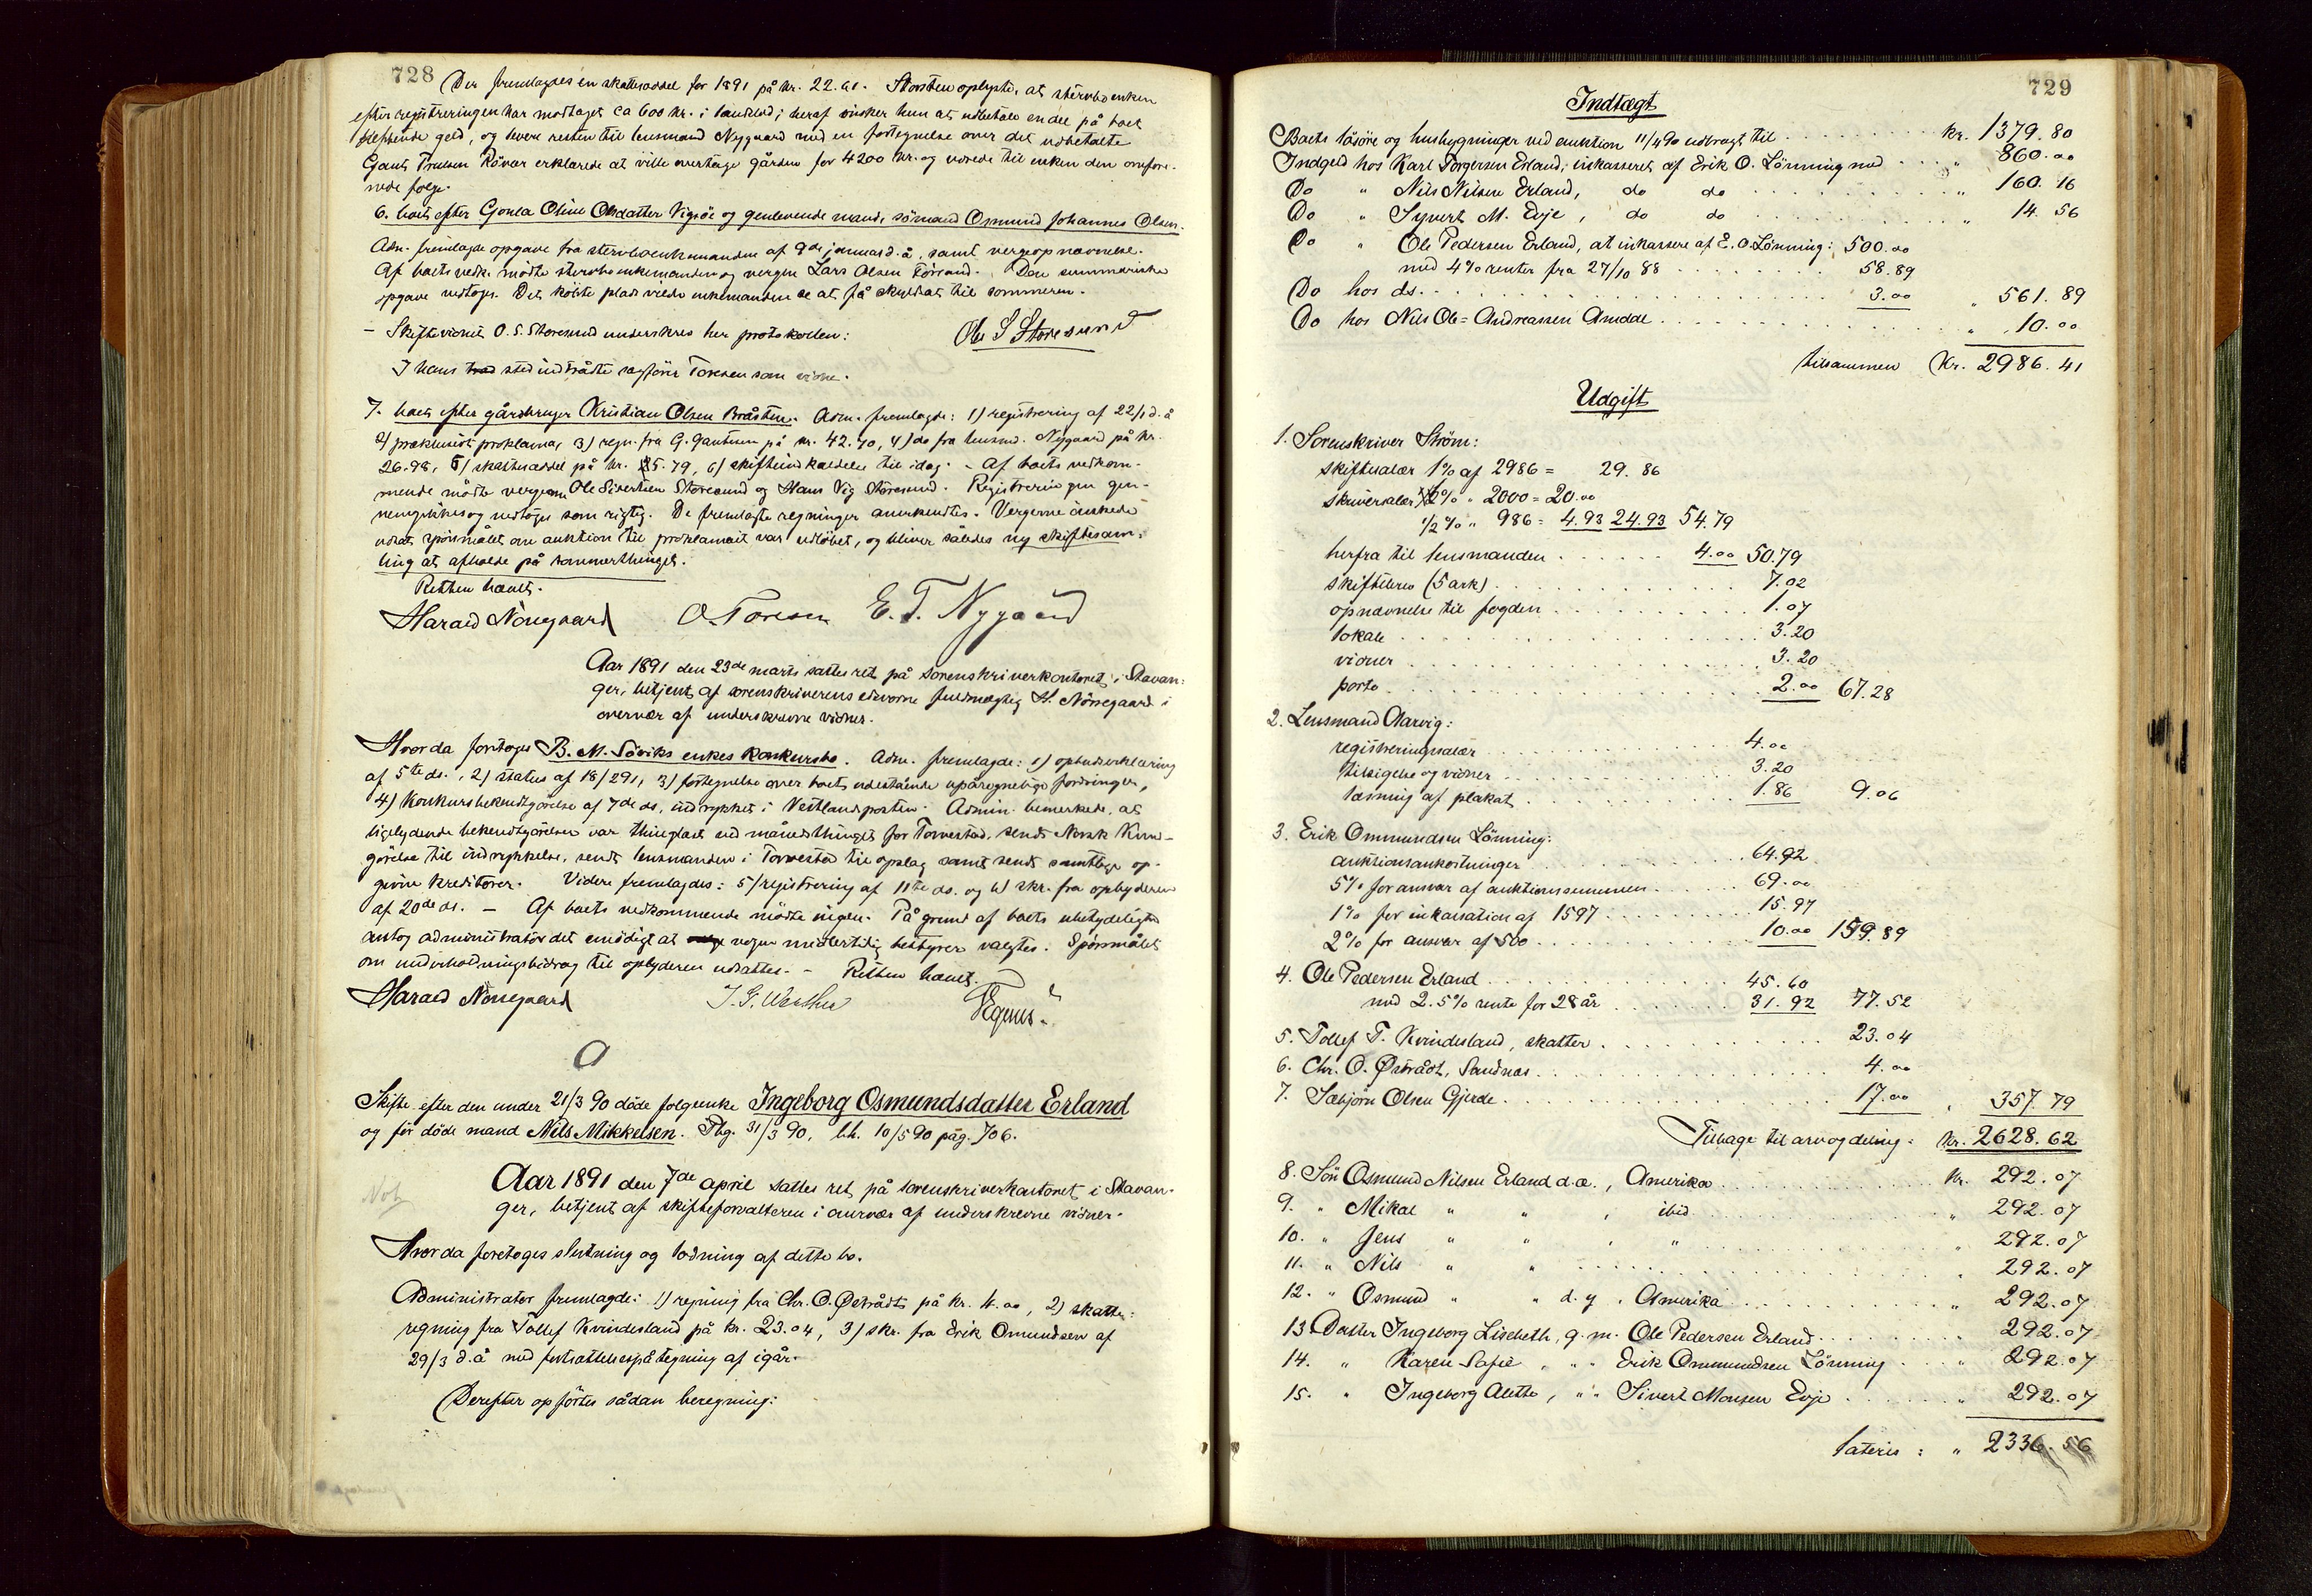 728
Der fremlagdes en skatteseddel for 1891 på kr. 22.61. Thorsten oplyste, at stervboenken
efter registreringen har modtaget ca 600 kr. i landslod; heraf ønsker hun at udbetale endel på boet
heftende gæld, og levere resten til lensmand Nygaard med en fortegnelse over det udbetalte
Gaut Truelsen Røvær erklærede at ville overtage gården for 4200 kr. og udrede til enken den omfore-
nede følge.
6. boet efter Gonla Oline Olsdatter Vigsøe og gjenlevende mand, sømand Osmund Johannes Olsen.
Adm. fremlagde opgave fra stervboenkemanden af 9de januar d. å, samt vergeopnævnelse.
Af boets vedk. mødte stervboenkemanden og vergen Lars Olsen Førsund. Den summariske
opgave vedtoges. Det købte plads vilde enkemanden se at få skyldsat til sommeren.
- Skiftevidnet O. S. Storesund underskrev her protokollen: Ole S Storesund
I hans sted indtrådte sagfører Toresen som vidne.
7. boet efter gårdbruger Kristian Olsen Bråsten. Adm. fremlagde: 1) registrering af 22/1 d. å
2) præklusivt proklama, 3) regn. fra G. Gautesen på kr. 42.70, 4) do fra lensmd. Nygaard på kr.
26.98, 5) skatteseddel på kr. 25.79, 6) skifteindkaldelse til idag. - Af boets vedkom-
mende mødte vergerne Ole Sivertsen Storesund og Hans Vig Storesund. Registreringen gjen-
nemgikkes og vedtoges som rigtig. De fremlagte regninger anerkendtes. Vergerne ønskede
udsat spørsmålet om auktion til proklamaet var udløbet, og bliver således ny skiftesam-
ling at afholde på sommerthinget.
Retten hævet.
Harald Nörregaard O. Toresen E. T. Nygaard
Aar 1891 den 23de marts sattes ret på sorenskriverkontoret i Stavan-
ger, betjent af sorenskriverens edsvorne fuldmægtig H. Nörregaard i
overvær af underskrevne vidner.
Hvorda foretoges B. M. Söviks enkes konkursbo. Adm. fremlagde: 1) opbudserklæring
af 5te ds., 2) status af 18/2 91, 3) fortegnelse over boets udestående upåregnelige fordringer,
4) Konkursbekendtgörelse af 7de ds, indrykket i Vestlandsposten. Admin. bemerkede, at
ligelydende bekendtgörelser var thinglæst ved månedsthinget for Torvestad, sendt Norsk Kund-
görelse til indrykkelse, sendt lensmanden i Torvestad til opslag samt sendt samtlige op-
givne kreditorer. Videre fremlagdes: 5) registrering af 11te ds. og 6) skr. fra opbyderen
af 20de ds. - Af boets vedkommende mødte ingen. På grund af boets ubetydelighed
antog administrator det unödigt at nogen midlertidig bestyrer valgtes. Spørsmålet
om underholdningsbidrag til opbyderen udsattes. - Retten hævet.
Harald Nörregaard J. G. Wester
Skifte efter den under 21/3 90 döde folgeenke Ingeborg Osmundsdatter Erland
og før döde mand Nils Mikkelsen. Thg. 31/3 90, bh. 10/5 90 pag. 706.
Not
Aar 1891 den 7de april sattes ret på sorenskriverkontoret i Stavan-
ger, betjent af skifteforvalteren i overvær af underskrevne vidner.
Hvorda foretoges slutning og lodning af dette bo.
Administrator fremlagde: 1) regning fra Chr. O. Østrådt på kr. 4.00, 2) skatte-
regning fra Tollef Kvindesland på kr. 23.04, 3) skr. fra Erik Omundsen af
29/3 d. å med fortsættelsespåtegning af igår.
Derefter opførtes sådan beregning:
729
Indtægt
Boets løsøre og husbygninger ved auktion 11/4 90 udbragt til kr. 1379.80
Indgeld hos Karl Torgersen Erland, inkasseret af Erik O. Lönning med " 860.00
Do " Nils Nilsen Erland, do do " 160.16
Do " Syvert M. Evje, do do " 14.56
Do " Ole Pedersen Erland, at inkassere af E. O. Lönning: 500.00
med 4% renter fra 27/10 88 58.89
Do hos ds. 3.00 " 561.89
Do hos Nils Ole-Andreassen Amdal " 10.00
tilsammen Kr. 2986.41
Udgift
1. Sorenskriver Ström:
skiftesalær 1% af 2986 = 29.86
skriversalær 1% " 2000 = 20.00
1/2 % " 986 = 4.93 24.93 54.79
herfra til lensmanden 4.00 50.79
skiftebrev (5 ark) 7.02
opnævnelse til fogden 1.07
lokale 3.20
vidner 3.20
porto 2.00 67.28
2. Lensmand Aarvig:
registreringssalær 4.00
tilsigelse og vidner 3.20
læsning af plakat 1.86 9.06
3. Erik Ommundsen Lönning:
auktionsomkostninger 64.92
5% for ansvar af auktionssummen 69.00
1% for inkassation af 1597 15.97
2% for ansvar af 500 10.00 159.89
4. Ole Pedersen Erland 45.60
med 2.5% rente for 28 år 31.92 77.52
5. Tollef T. Kvindesland, skatter 23.04
6. Chr. O. Østrådt, Sandnæs 4.00
7. Sæbjörn Olsen Gjerde 17.00 " 357.79
Tilbage til arv og deling: Kr. 2628.62
8. Sön Osmund Nilsen Erland d. æ., Amerika kr. 292.07
9. " Mikal " " , ibid " 292.07
10. " Jens " " , " " 292.07
11. " Nils " " " 292.07
12. " Osmund " " d. y, Amerika " 292.07
13. Datter Ingeborg Lisebeth, g. m. Ole Pedersen Erland " 292.07
14. " Karen Sofie " " " Erik Ommundsen Lönning " 292.07
15. " Ingeborg Alette, " " Sivert Monsen Evje " 292.07
lateris: " 2336.56